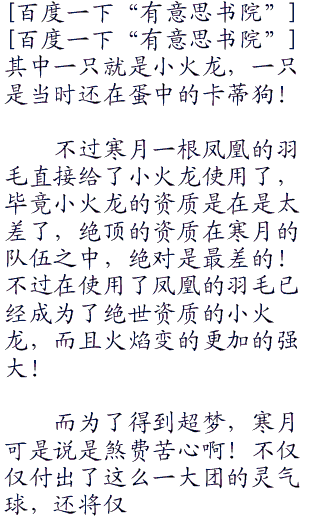 [百度一下“有意思书院”]
[百度一下“有意思书院”]
其中一只就是小火龙，一只
是当时还在蛋中的卡蒂狗！
不过寒月一根凤凰的羽
毛直接给了小火龙使用了，
毕竟小火龙的资质是在是太
差了，绝顶的资质在寒月的
队伍之中，绝对是最差的！
不过在使用了凤凰的羽毛已
经成为了绝世资质的小火
龙，而且火焰变的更加的强
大！
而为了得到超梦，寒月
可是说是煞费苦心啊！不仅
仅付出了这么一大团的灵气
球，还将仅